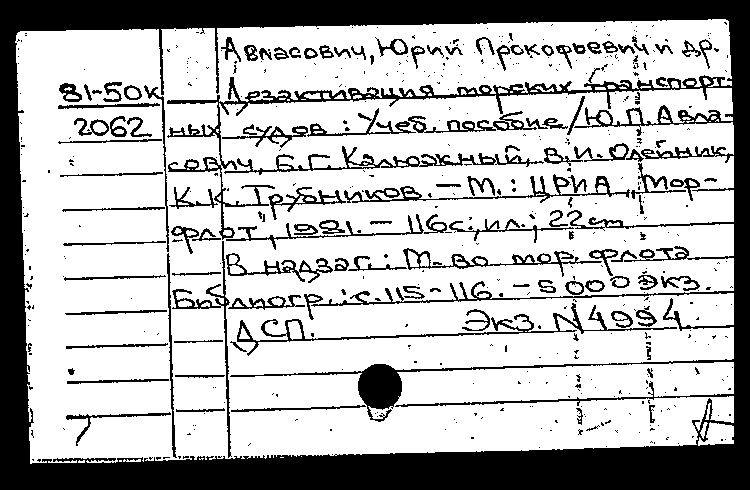 Авласович, Юрий Прокофьевич и др.
81-50к Дезактивация морских транспорт-
2062 ных судов : Учеб. пособие / Ю.П. Авла-
сович, Б.Г. Калюжный, В.И. Олейник,
К.К. Трубников. — М. : ЦРИА „Мор-
флот", 1981. — 116с.: ил.; 22 cm
В надзаг.: М-во мор. флота
Библиогр.: с. 115-116. - 5000 экз.
ДСП. Экз. N 4994